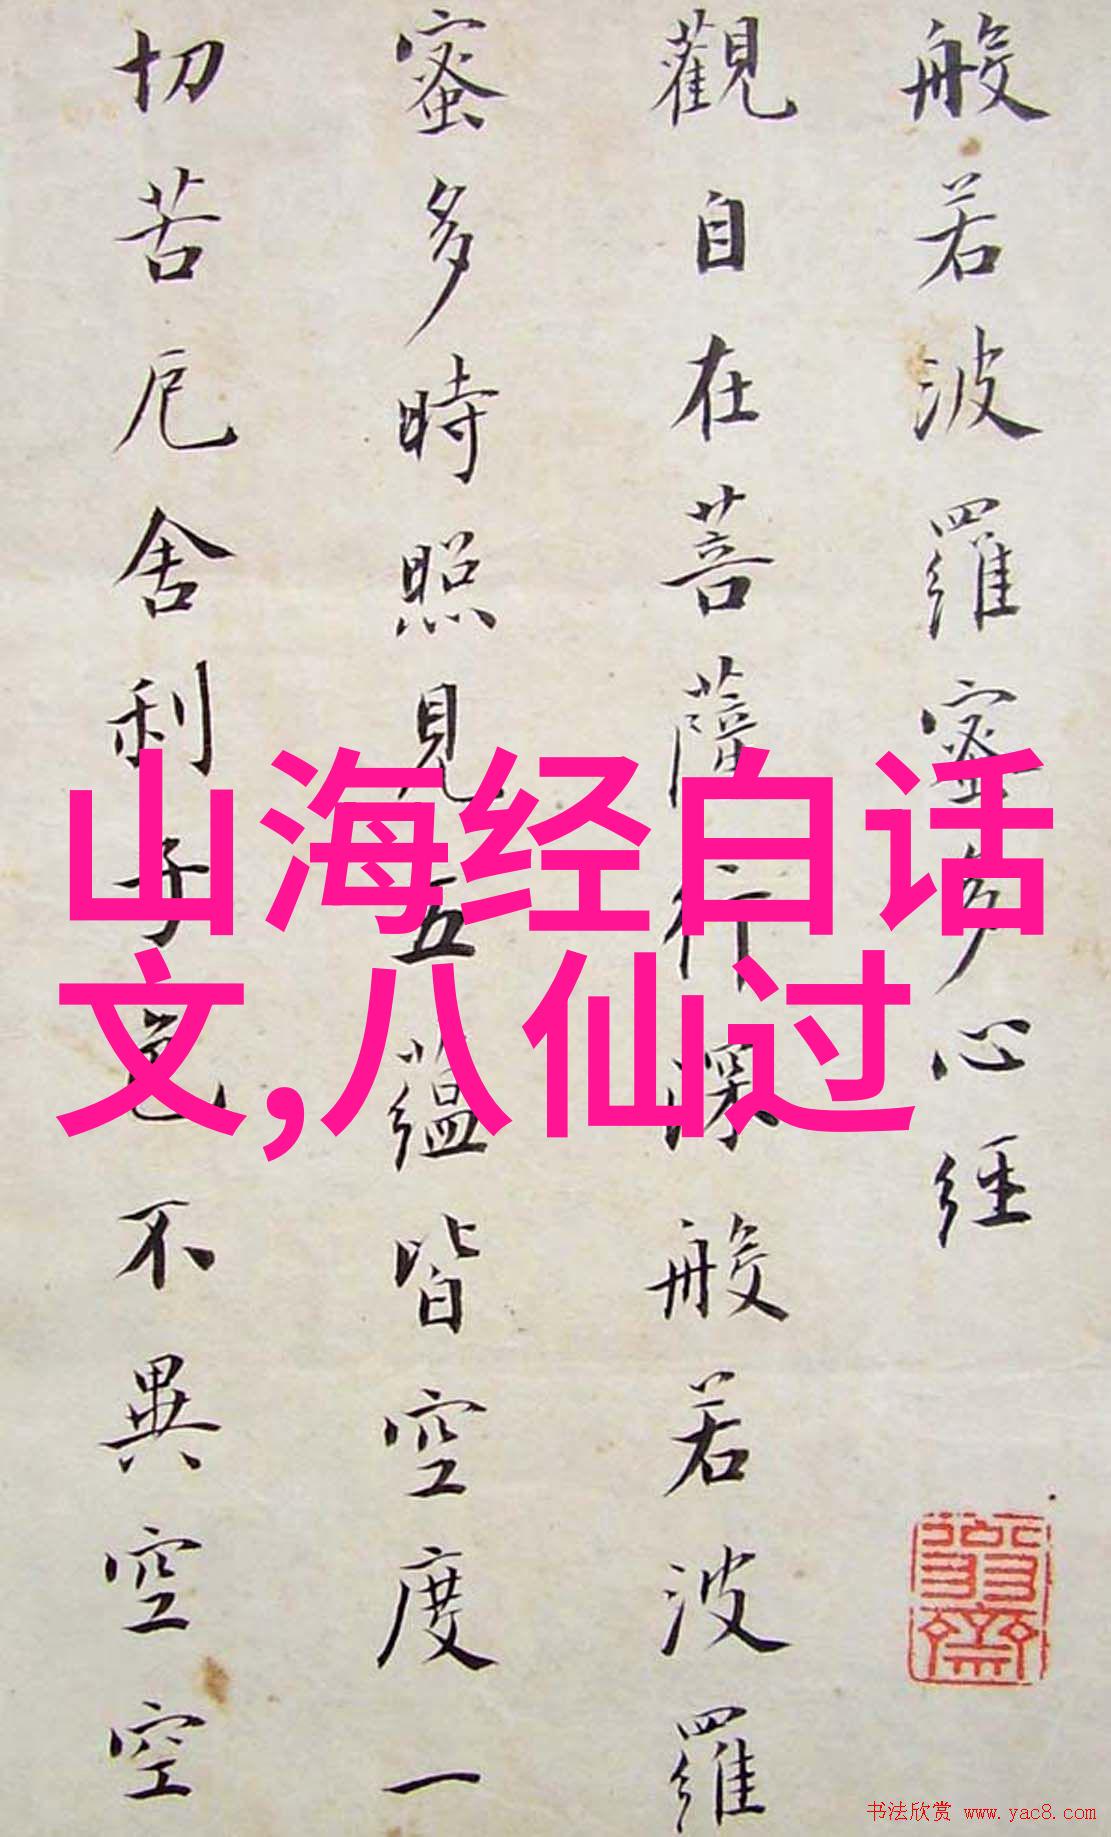 般若波羅蜜多心經
觀自在菩薩行深般若波羅
蜜多時照見五蘊皆空度一
切苦厄舍利子色不異空空
山海经白话
文,八仙过
书法欣赏 www.yac8.com